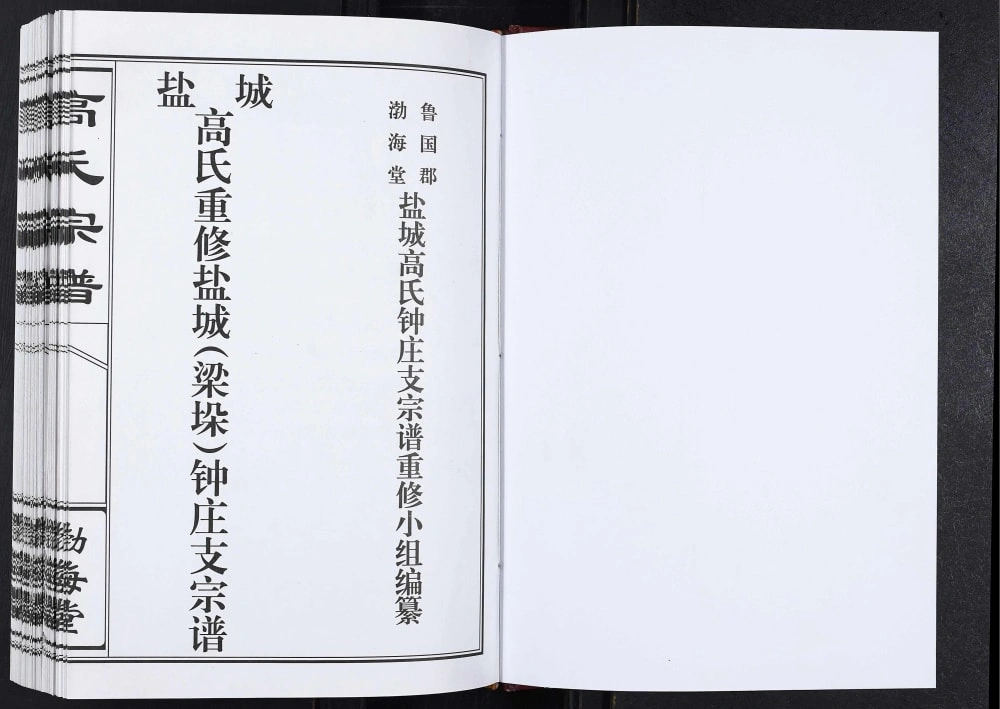 鲁国郡
渤海堂
盐城高氏钟庄支宗谱重修小组编纂
盐城
高氏重修盐城(梁垛)钟庄支宗谱
高氏宗谱
渤海堂